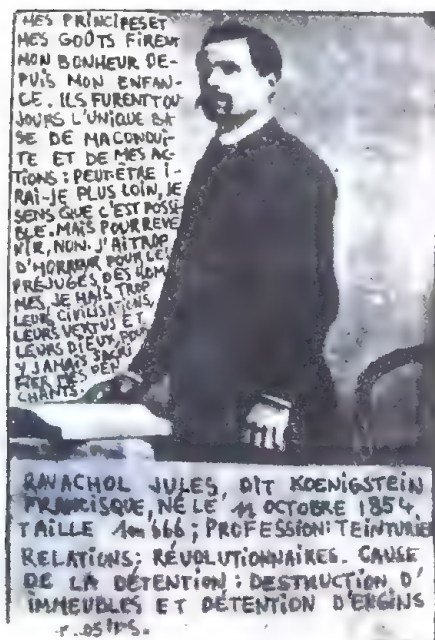 MES PRINCIPES ET
MES GOÛTS FIRENT
MON BONHEUR DE-
PUIS MON ENFAN-
CE. ILS FURENT TOU
JOURS L'UNIQUE BA
SE DE MA CONDUI-
TE ET DE MES AC-
TIONS : PEUT-ÊTRE I-
RAI-JE PLUS LOIN, JE
SENS QUE C'EST POSSI
BLE. MAIS POUR REVE
NIR, NON. J'AI TROP
D'HORREUR POUR LES
PRÉJUGÉS DES HOM
MES, JE HAIS TROP
LEURS CIVILISATIONS,
LEURS VERTUS ET
LEURS DIEUX, POUR
Y JAMAIS SACRI
FIER MES PEN
CHANTS.
RAVACHOL JULES, DIT KOENIGSTEIN
FRANCISQUE, NÉ LE 11 OCTOBRE 1854.
TAILLE 1m666 ; PROFESSION : TEINTURIE
RELATIONS ; RÉVOLUTIONNAIRES. CAUSE
DE LA DÉTENTION : DESTRUCTION D'
IMMEUBLES ET DÉTENTION D'ENGINS